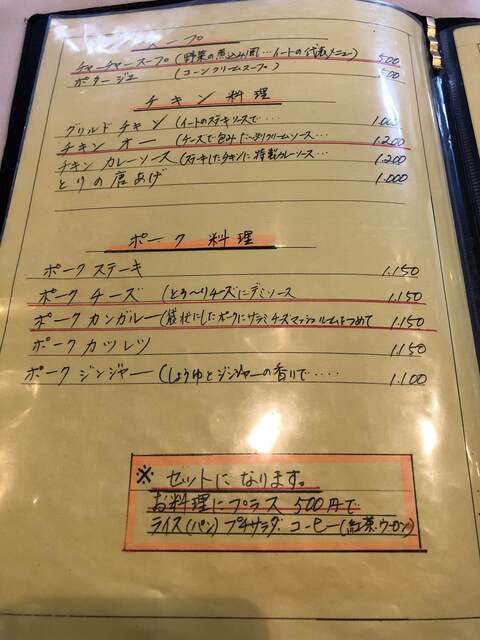 スープ
チャーチャースープ (野菜の煮込み風…イートの代表メニュー) 500
ポタージュ (コーンクリームスープ) 500
チキン料理
グリルドチャン (イートのステキソースで‥‥ 1.000
チキンオー (チーズで包みたっぷりクリームソース… 1.200
チキンカレーソース (ステキしたチキンに特製カレーソース… 1.200
とりの唐あげ 1.000
ポーク料理
ポークステーキ 1.150
ポークチーズ (とろ〜りチーズにデミソース 1.150
ポークカンガルー (袋状にしたポークにサラミチーズマッシュルームをつめて 1.150
ポークカツレツ 1.150
ポークジンジャー (しょうゆとジンジャーの香りで‥‥‥ 1.100
※ セットになります。
お料理にプラス500円で
ライス(パン) プチサラダ. コーヒー(紅茶.ウーロン)